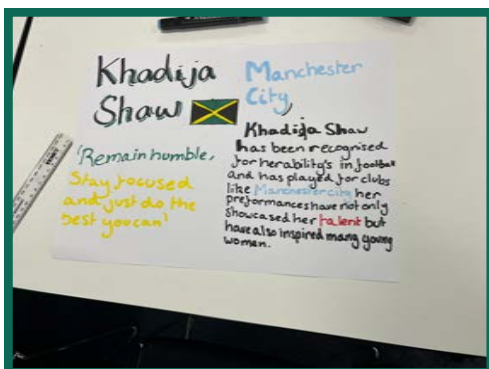 Khadija
Shaw
'Remain humble,
Stay focused
and just do the
best you can'
Manchester
City,
Khadija Shaw
has been recognised
for her ability's in football
and has played for clubs
like Manchester city her
preformances have not only
showcased her talent but
have also inspired many young
women.